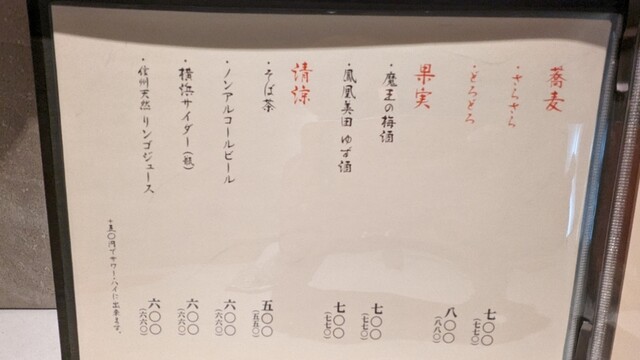 蕎麦
・さらさら 七〇〇(七七〇)
・どろどろ 八〇〇(八八〇)
果実
・魔王の梅酒 七〇〇(七七〇)
・鳳凰美田 ゆず酒 七〇〇(七七〇)
清涼
・そば茶 五〇〇(五五〇)
・ノンアルコールビール 六〇〇(六六〇)
・横浜サイダー(瓶) 六〇〇(六六〇)
・信州天然リンゴジュース 六〇〇(六六〇)
+五〇円でサワー・ハイに出来ます。